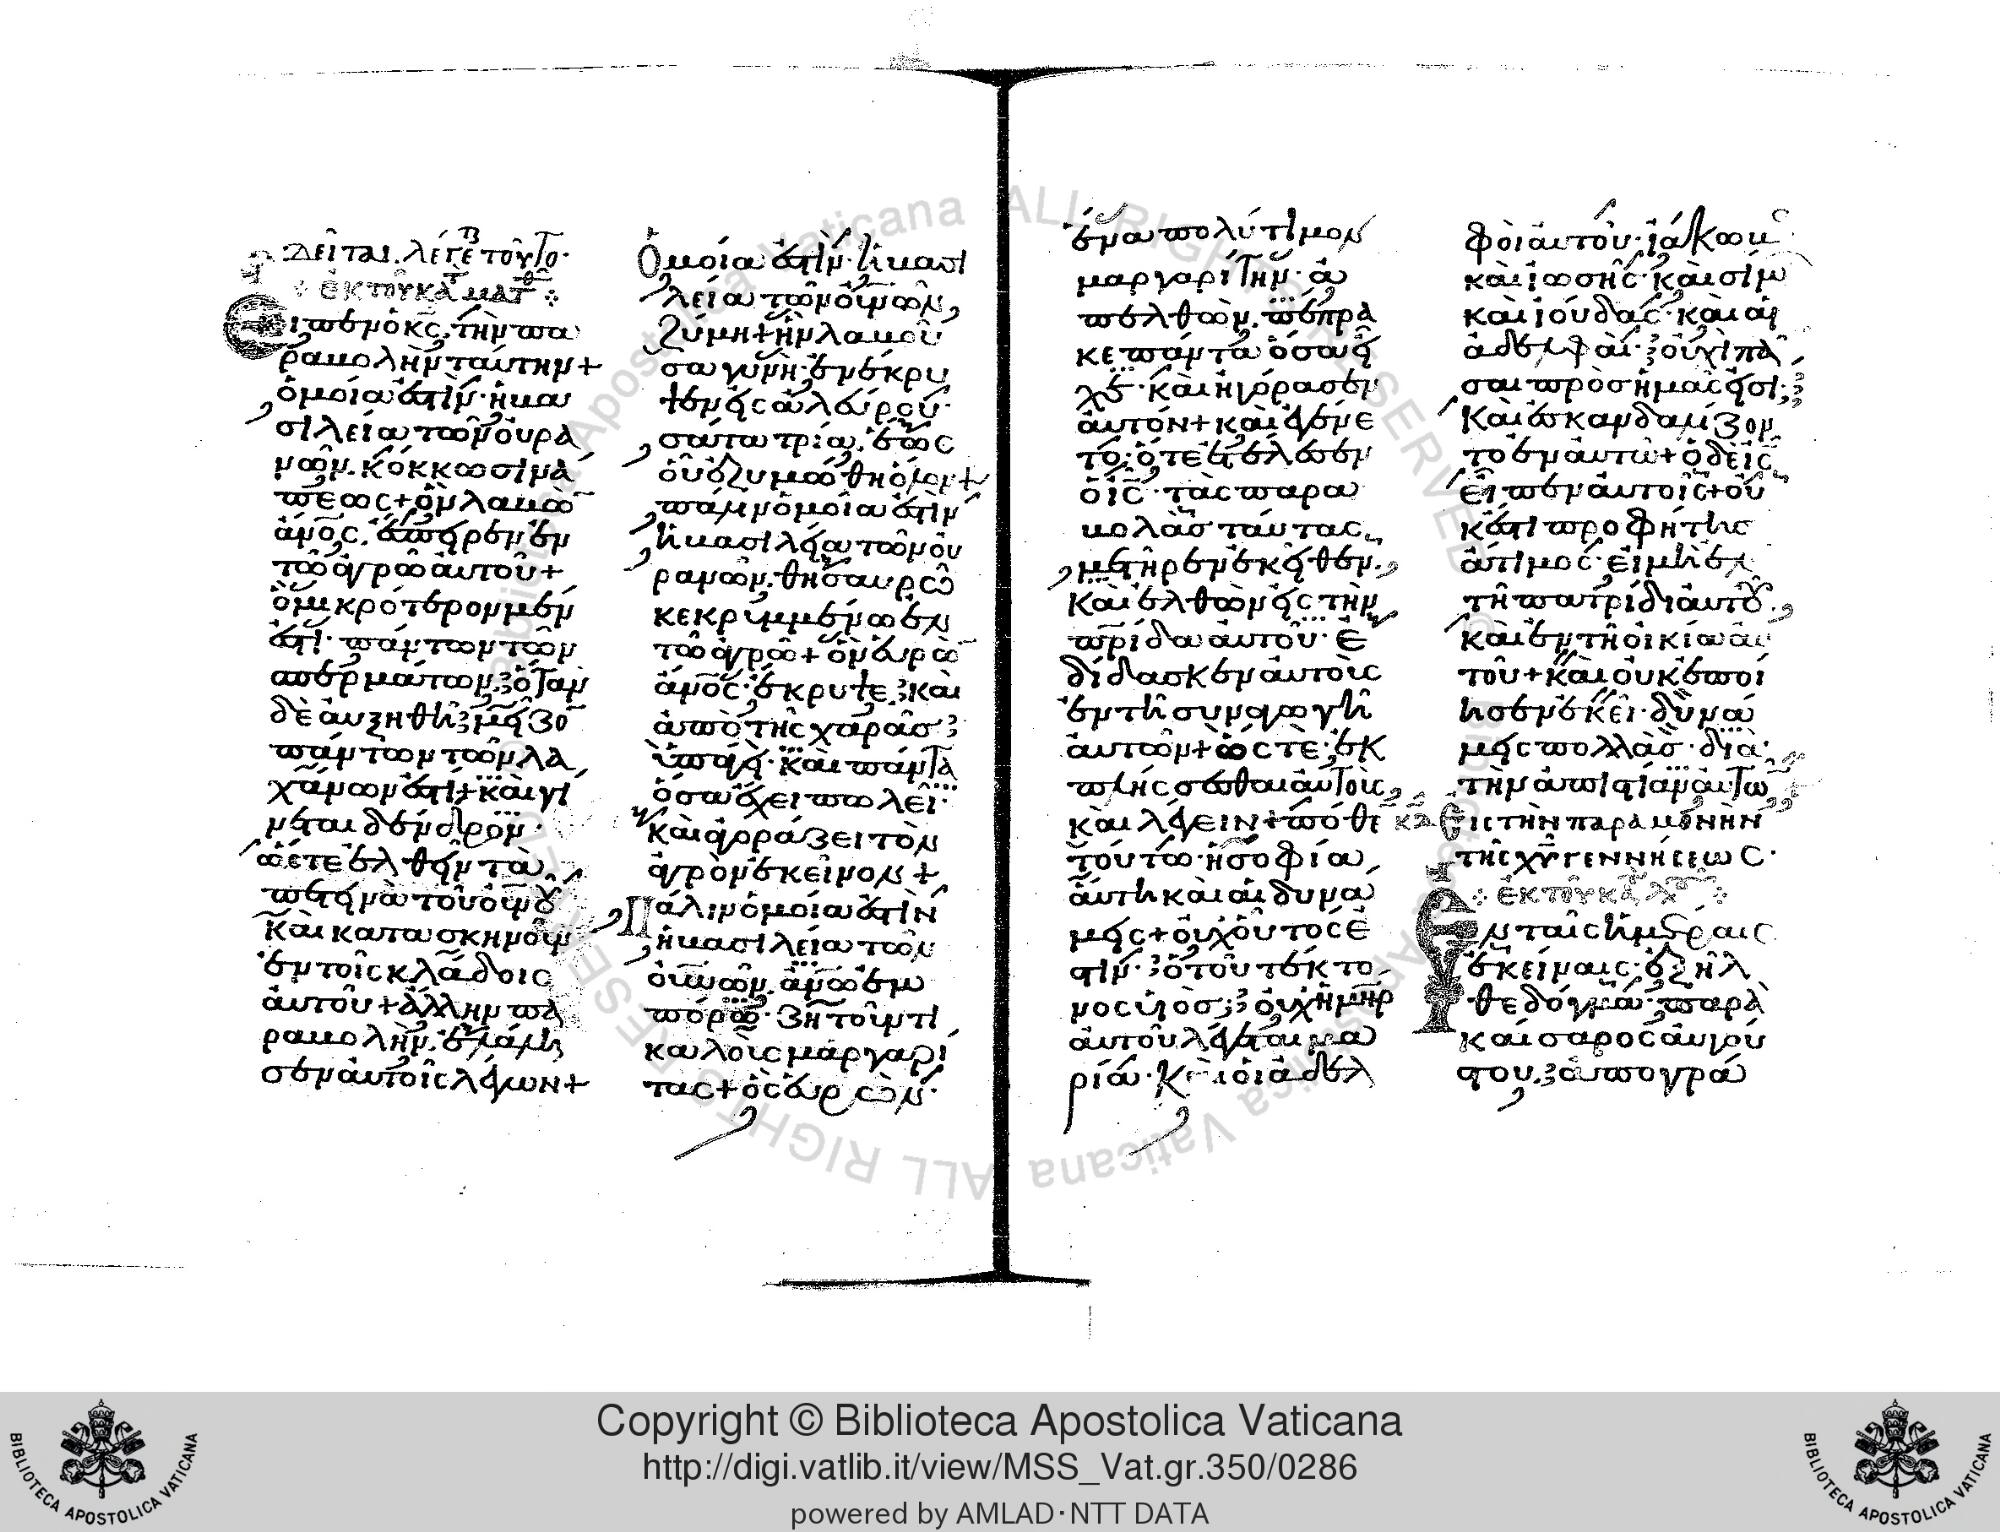 δεῖται. λέγετ τοῦτο·
ἐκ τοῦ κατ ματθ
Εἶπεν ὁ κς. τὴν πα
ραβολὴν ταύτην +
ὁμοία ἐστὶν· ἡ βα
σιλεία τῶν οὐρα
νῶν. κόκκω σινά
πεως + ὃν λαβὼ
ἄνος. ἔσπειρεν ἐν
τῶ ἀγρῶ αὐτοῦ +
ὃ μικρότερον μέν
ἐστι· πάντων τῶν
σπερμάτων. ὅταν
δὲ αὐξηθῆ. μεῖζο
πάντων τῶν λα
χάνων ἐστὶ + καὶ γί
νεται δένδρον·
ὥστε ἐλθεῖν τὰ
πετεινὰ τοῦ οὐνοῦ
καὶ κατασκηνοῦν
ἐν τοῖς κλάδοις
αὐτοῦ + ἄλλην πα
ραβολὴν. ἐλάλη
σεν αὐτοῖς λέγων +
Ὁμοία ἐστὶν· ἡ βασι
λεία τῶν οὐνῶν,
ζύμη + ἣν λαβοῦ
σα γυνὴ· ἐνέκρυ
ψεν εἰς ἀλεύρου·
σάτα τρία. ἕως
οὗ ἐζυμώθη ὅλον +
πάλιν ὁμοία ἐστὶν
ἡ βασιλεία τῶν οὐ
ρανῶν. θησαυρῶ
κεκρυμμένω ἐν
τῶ ἀγρῶ + ὃν εὑρὼ
ἄνος· ἔκρυψε. καὶ
ἀπὸ τῆς χαρᾶς
ὑπάγει· καὶ πάντα
ὅσα ἔχει πωλεῖ·
καὶ ἀγοράζει τὸν
ἀγρὸν ἐκεῖνον +
Πάλιν ὁμοία ἐστὶν
ἡ βασιλεία τῶν
οὐνῶν. ἀνῶ ἐμ
πόρω· ζητοῦντι
καλοὺς μαργαρί
τας + ὃς εὑρὼν·
ἕνα πολύτιμον
μαργαρίτην· ἀ
πελθὼν. πέπρα
κε πάντα ὅσα εἶ
χε· καὶ ἠγόρασεν
αὐτόν + καὶ ἐγένε
το· ὅτε ἐτέλεσεν
ὁ ις· τὰς παρα
βολὰς ταύτας,
μετῆρεν ἐκεῖθεν.
Καὶ ἐλθὼν εἰς τὴν
πρίδα αὐτοῦ· ἐ
δίδασκεν αὐτοὺς
ἐν τῆ συναγωγῆ
αὐτῶν + ὥστε· ἐκ
πλήσσεσθαι αὐτοὺς,
καὶ λέγειν + πόθε
τούτω· ἡ σοφία
αὕτη καὶ αἱ δυνά
μεις + οὐχ οὗτος ἐ
στιν· ὁ τοῦ τέκτο
νος υἱὸς; οὐχὶ ἡ μηρ
αὐτοῦ λέγεται μα
ρία· καὶ οἱ ἀδελ
φοὶ αὐτοῦ· ἰάκωβ
καὶ ἰωσῆς· καὶ σίμω
καὶ ἰούδας· καὶ αἱ
ἀδελφαὶ· οὐχὶ πᾶ
σαι πρὸς ἡμᾶς εἰσι;
Καὶ ἐσκανδαλίζον
το ἐν αὐτῶ + ὁ δὲ ις
εἶπεν αὐτοῖς + οὐ
κ ἔστι προφήτης
ἄτιμος· εἰ μὴ ἐν
τῆ πατρίδι αὐτοῦ.
καὶ ἐν τῆ οἰκία αὐ
τοῦ + καὶ οὐκ ἐποί
ησεν ἐκεῖ· δυνά
μεις πολλὰς· διὰ
τὴν ἀπιστίαν αὐτῶ
Εἰς τὴν παραμονὴν
τῆς χυ γεννήσεως·
ἐκ τοῦ κατ λουκ
Ἐν ταῖς ἡμέραις
ἐκείναις· ἐξῆλ
θε δόγμα· παρὰ
καίσαρος αὐγού
στου. ἀπογρά
Copyright © Biblioteca Apostolica Vaticana
http://digi.vatlib.it/view/MSS_Vat.gr.350/0286
powered by AMLAD·NTT DATA
BIBLIOTECA APOSTOLICA VATICANA
BIBLIOTECA APOSTOLICA VATICANA